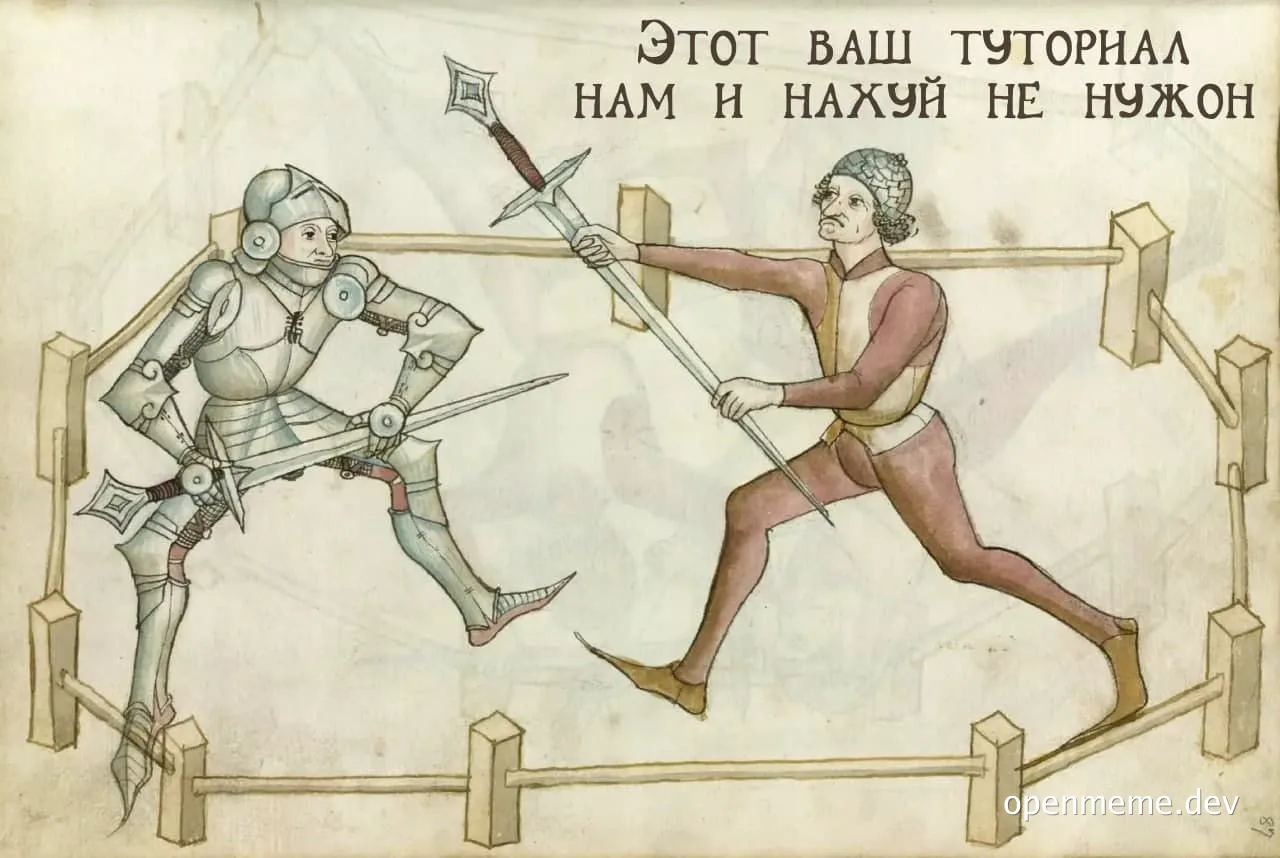 Этот ваш туториал
нам и нахуй не нужон
openmeme.dev